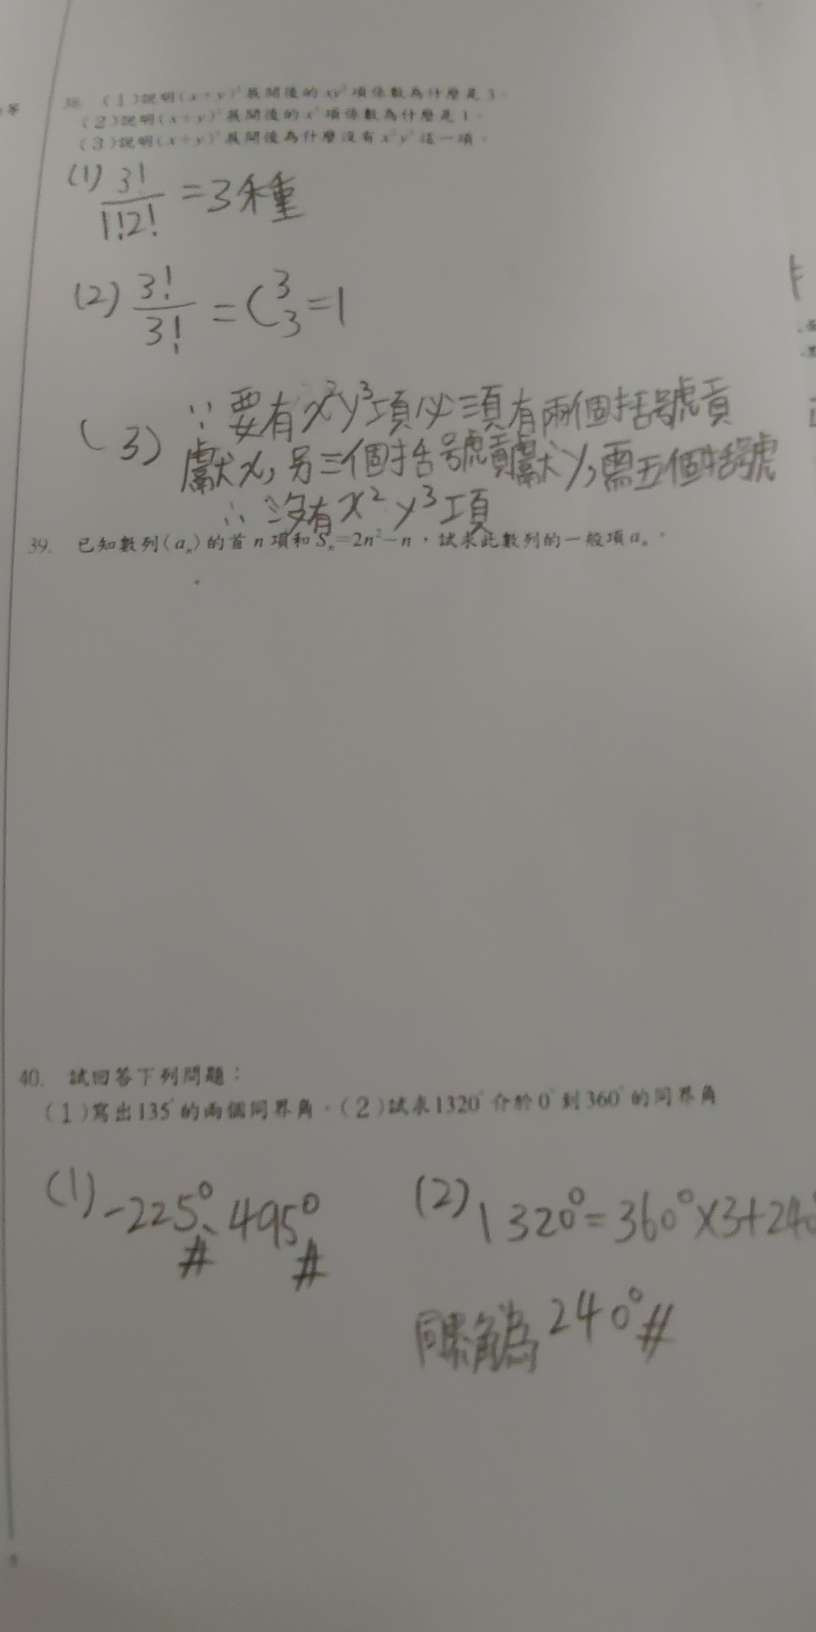 38. (1)說明(x+y)³展開後的xy²項係數為什麼是3。
(2)說明(x+y)³展開後的x³項係數為什麼是1。
(3)說明(x+y)³展開後為什麼沒有x²y³這一項。
(1) 3!/1!2! = 3種
(2) 3!/3! = C³₃ = 1
(3) ∵要有x²y³項必須有兩個括號貢
獻x,另三個括號貢獻y,需五個括號
∴沒有x²y³項
39. 已知數列⟨aₙ⟩的首n項和Sₙ=2n²-n,試求此數列的一般項aₙ。
40. 試回答下列問題:
(1)寫出135°的兩個同界角。(2)試求1320°介於0°到360°的同界角
(1) -225°、495°
# #
(2) 1320°=360°×3+240°
同界角為240°#